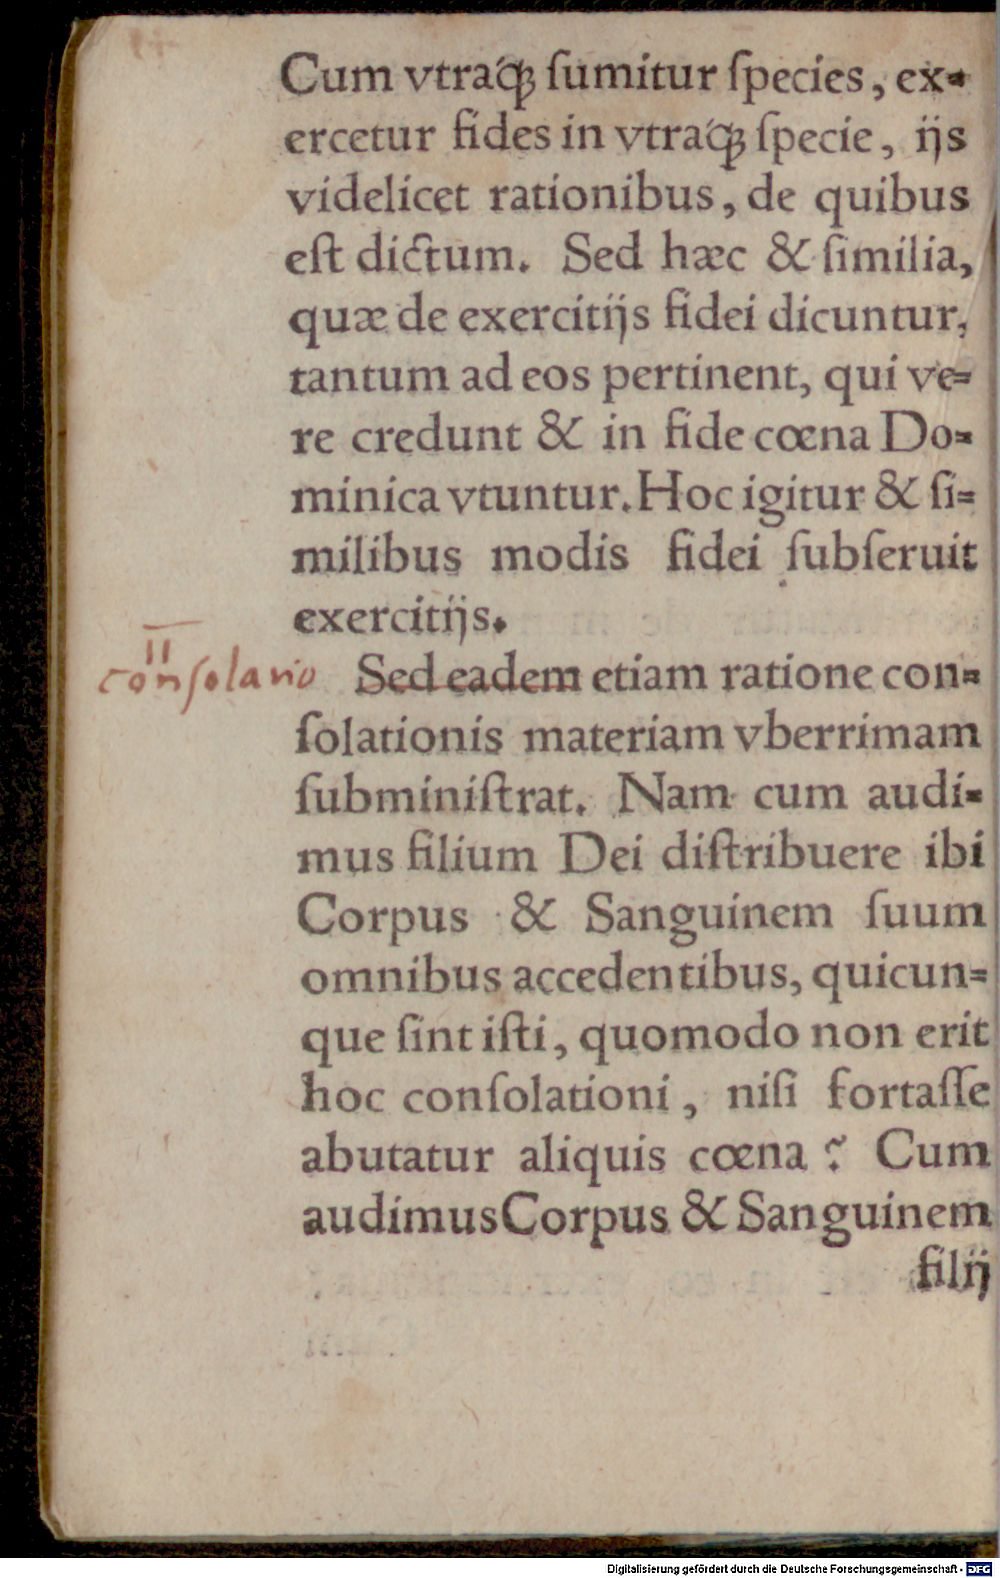 Cum vtraq́ꝫ ſumitur ſpecies, ex-
ercetur fides in vtraq́ꝫ ſpecie, ijs
videlicet rationibus, de quibus
eſt dictum. Sed hæc & ſimilia,
quæ de exercitijs fidei dicuntur,
tantum ad eos pertinent, qui ve-
re credunt & in fide cœna Do-
minica vtuntur. Hoc igitur & ſi-
milibus modis fidei ſubſeruit
exercitijs.
II
conſolatio
Sed eadem etiam ratione con-
ſolationis materiam vberrimam
ſubminiſtrat. Nam cum audi-
mus filium Dei diſtribuere ibi
Corpus & Sanguinem ſuum
omnibus accedentibus, quicun-
que ſint iſti, quomodo non erit
hoc conſolationi, niſi fortaſſe
abutatur aliquis cœna? Cum
audimus Corpus & Sanguinem
filij
Digitalisierung gefördert durch die Deutsche Forschungsgemeinschaft - DFG